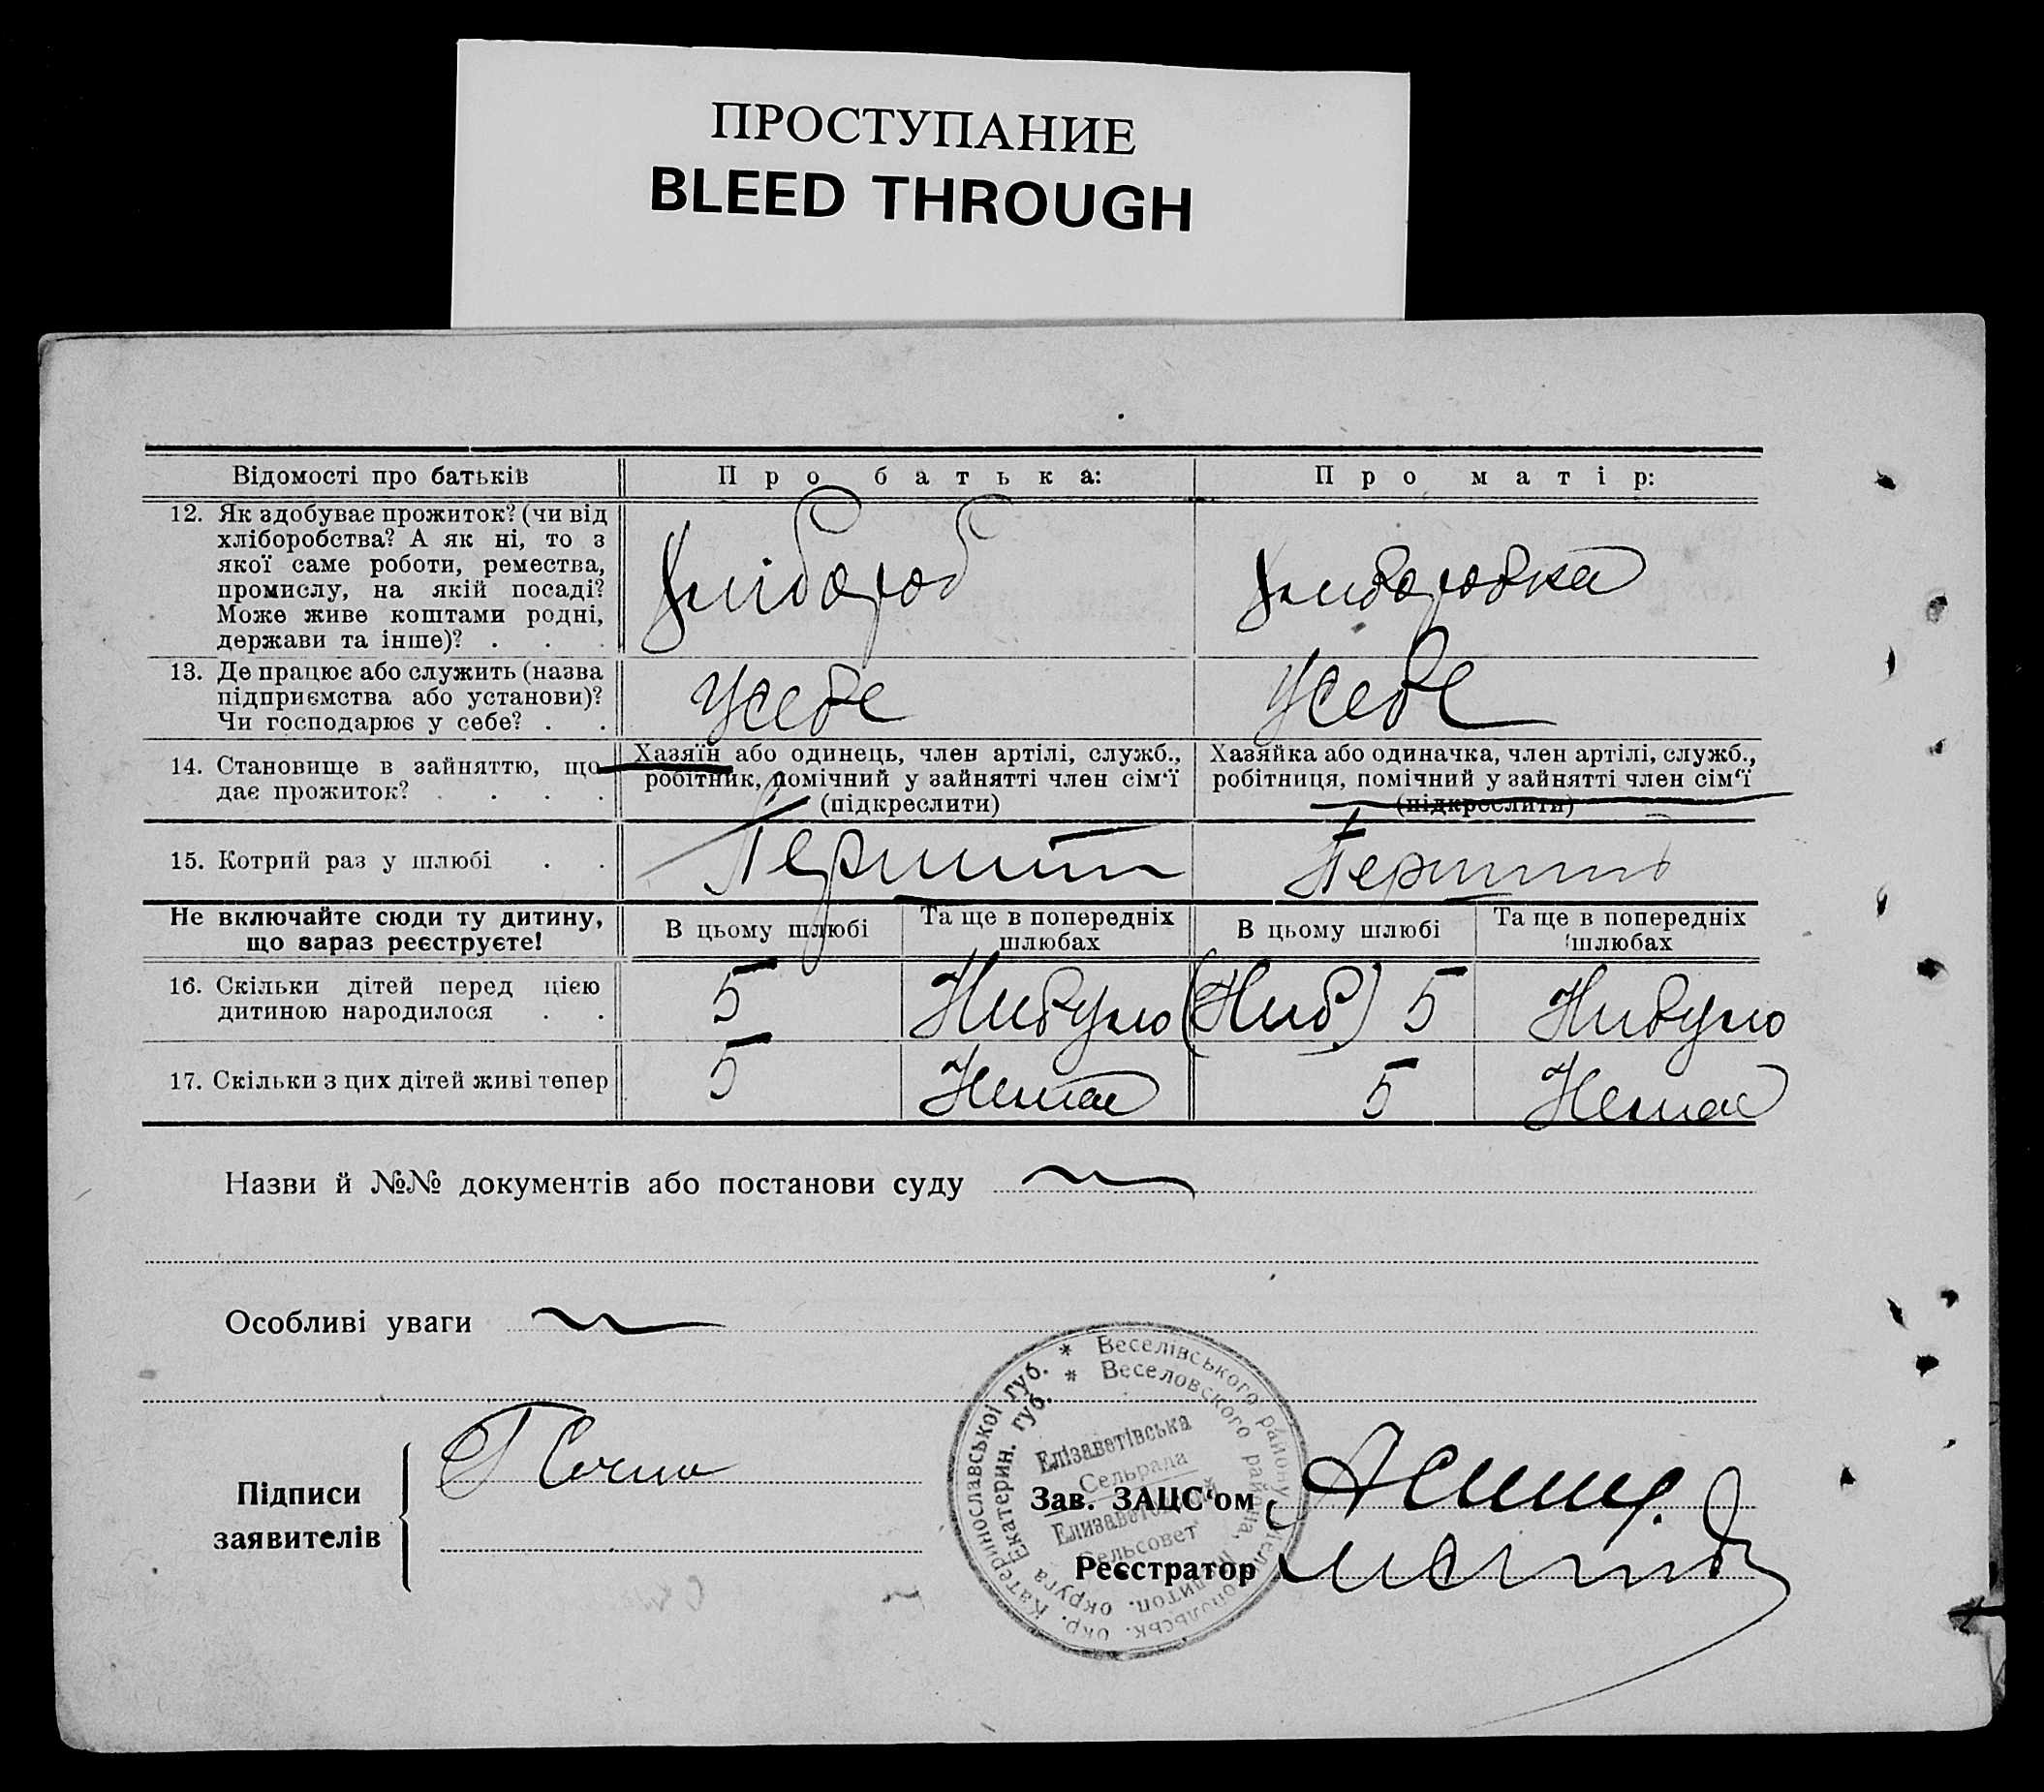 ПРОСТУПАНИЕ
BLEED THROUGH
Відомості про батьків
Про батька:
Про матір:
12. Як здобуває прожиток? (чи від
хліборобства? А як ні, то з
якої саме роботи, ремества,
промислу, на якій посаді?
Може живе коштами родні,
держави та інше)? . . .
Хлібороб
Хлиборобка
13. Де працює або служить (назва
підприємства або установи)?
Чи господарює у себе? . .
У себе
У себе
14. Становище в зайняттю, що
дає прожиток? . . . .
Хазяїн або одинець, член артілі, служб.,
робітник, помічний у зайнятті член сім'ї
(підкреслити)
Хазяйка або одиначка, член артілі, служб.,
робітниця, помічний у зайнятті член сім'ї
(підкреслити)
15. Котрий раз у шлюбі . .
Не включайте сюди ту дитину,
що зараз реєструєте!
В цьому шлюбі
Та ще в попередніх
шлюбах
В цьому шлюбі
Та ще в попередніх
шлюбах
16. Скільки дітей перед цією
дитиною народилося . .
5
Нибуло
(Ниб) 5
Нибуло
17. Скільки з цих дітей живі тепер
5
Немає
5
Немає
Назви й №№ документів або постанови суду
Особливі уваги
Підписи
заявителів
Зав. ЗАЦС'ом
Реєстратор
* Веселівського району Мелітопольськ. окр. Катеринославської губ.
* Веселовского района, Мелитоп. округа Екатерин. губ.
Елізаветівська
Сельрада
Елизаветовский
Сельсовет